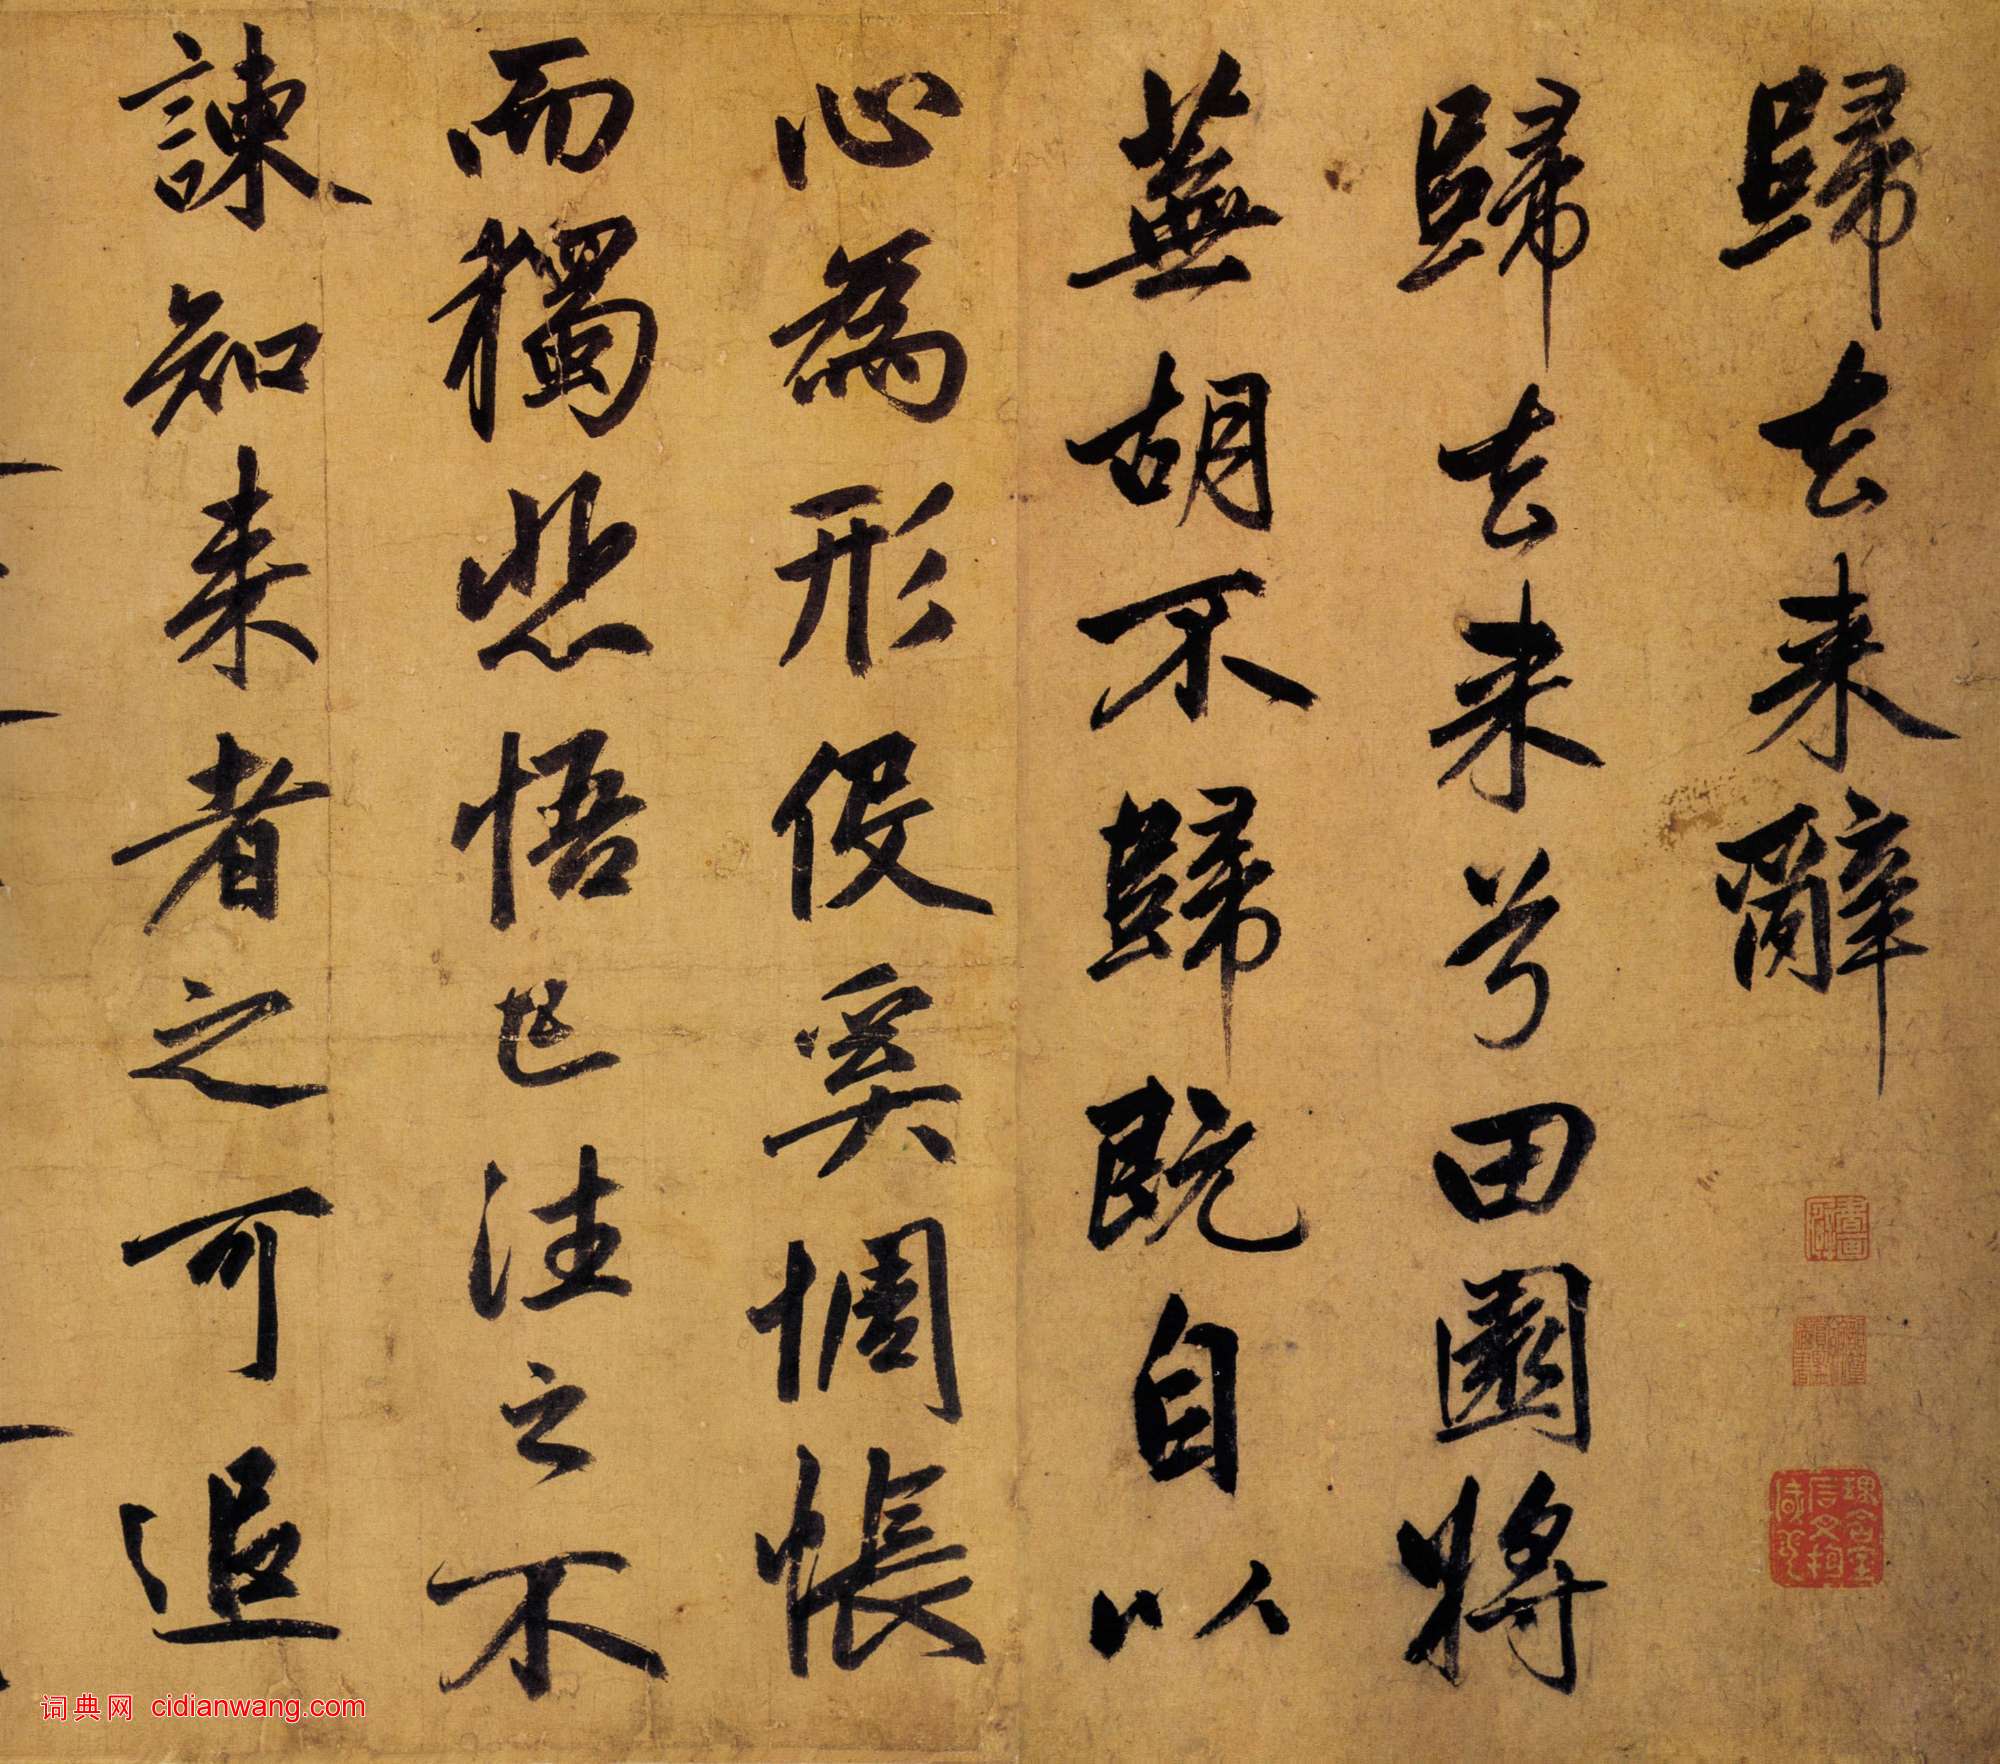 歸去来辭
歸去来兮田園將
蕪胡不歸既自以
心為形役奚惆悵
而獨悲悟已往之不
諫知来者之可追
词典网 cidianwang.com